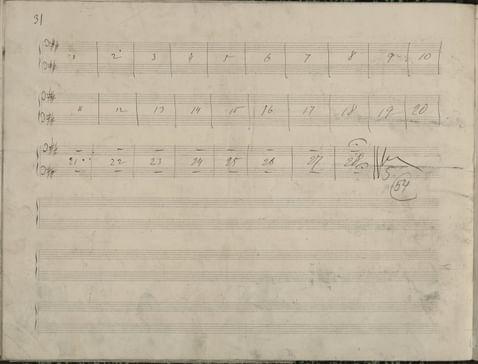 31
1 2 3 4 5 6 7 8 9 10
11 12 13 14 15 16 17 18 19 20
21 22 23 24 25 26 27 28
54